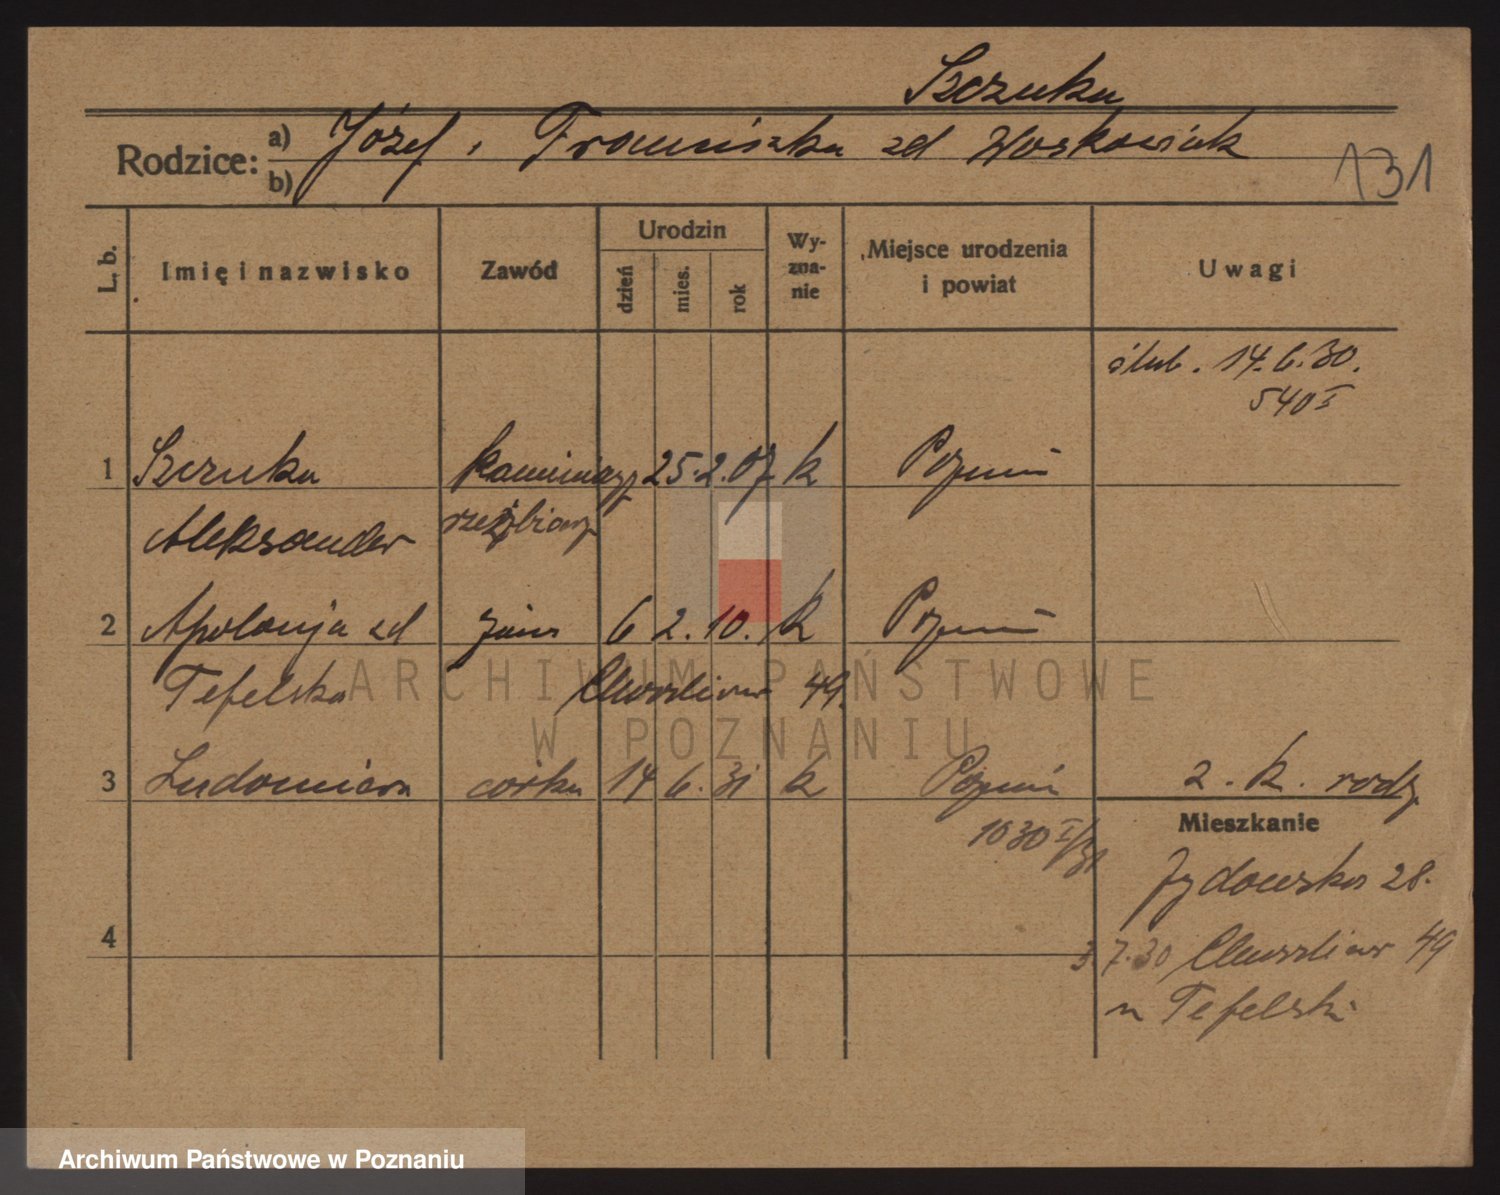 Szczuka
Rodzice: a) Józef i Franciszka zd Woskowiak
b)
131
L. b.
Imię i nazwisko
Zawód
Urodzin
dzień
mies.
rok
Wy-
zna-
nie
Miejsce urodzenia
i powiat
Uwagi
ślub. 14.6.30.
540 I
1 Szczuka kamieniarz 25.2.07 k Poznań
Aleksander rzeźbiarz
2 Apolonja zd 6 2. 10. k Poznań
Tefelska 49.
3 Ludomiera córka 14 6. 31 k Poznań 2. k. rodz.
1030 I/31
Mieszkanie
Żydowska 28.
4
3 7.30 49
u Tefelski
ARCHIWUM PAŃSTWOWE
W POZNANIU
Archiwum Państwowe w Poznaniu